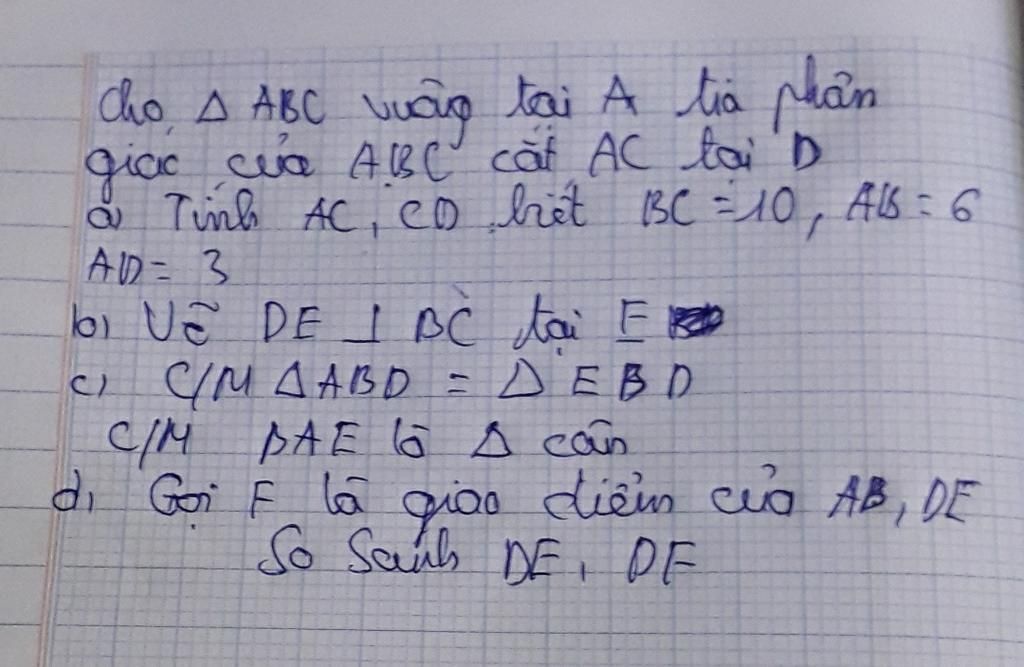 Cho Δ ABC vuông tại A tia phân
giác của ABC cắt AC tại D
a) Tính AC, CD biết BC = 10, AB = 6
AD = 3
b) Vẽ DE ⊥ BC tại E
c) C/M Δ ABD = Δ EBD
C/M BAE là Δ cân
d) Gọi F là giao điểm của AB, DE
So sánh DE, DF